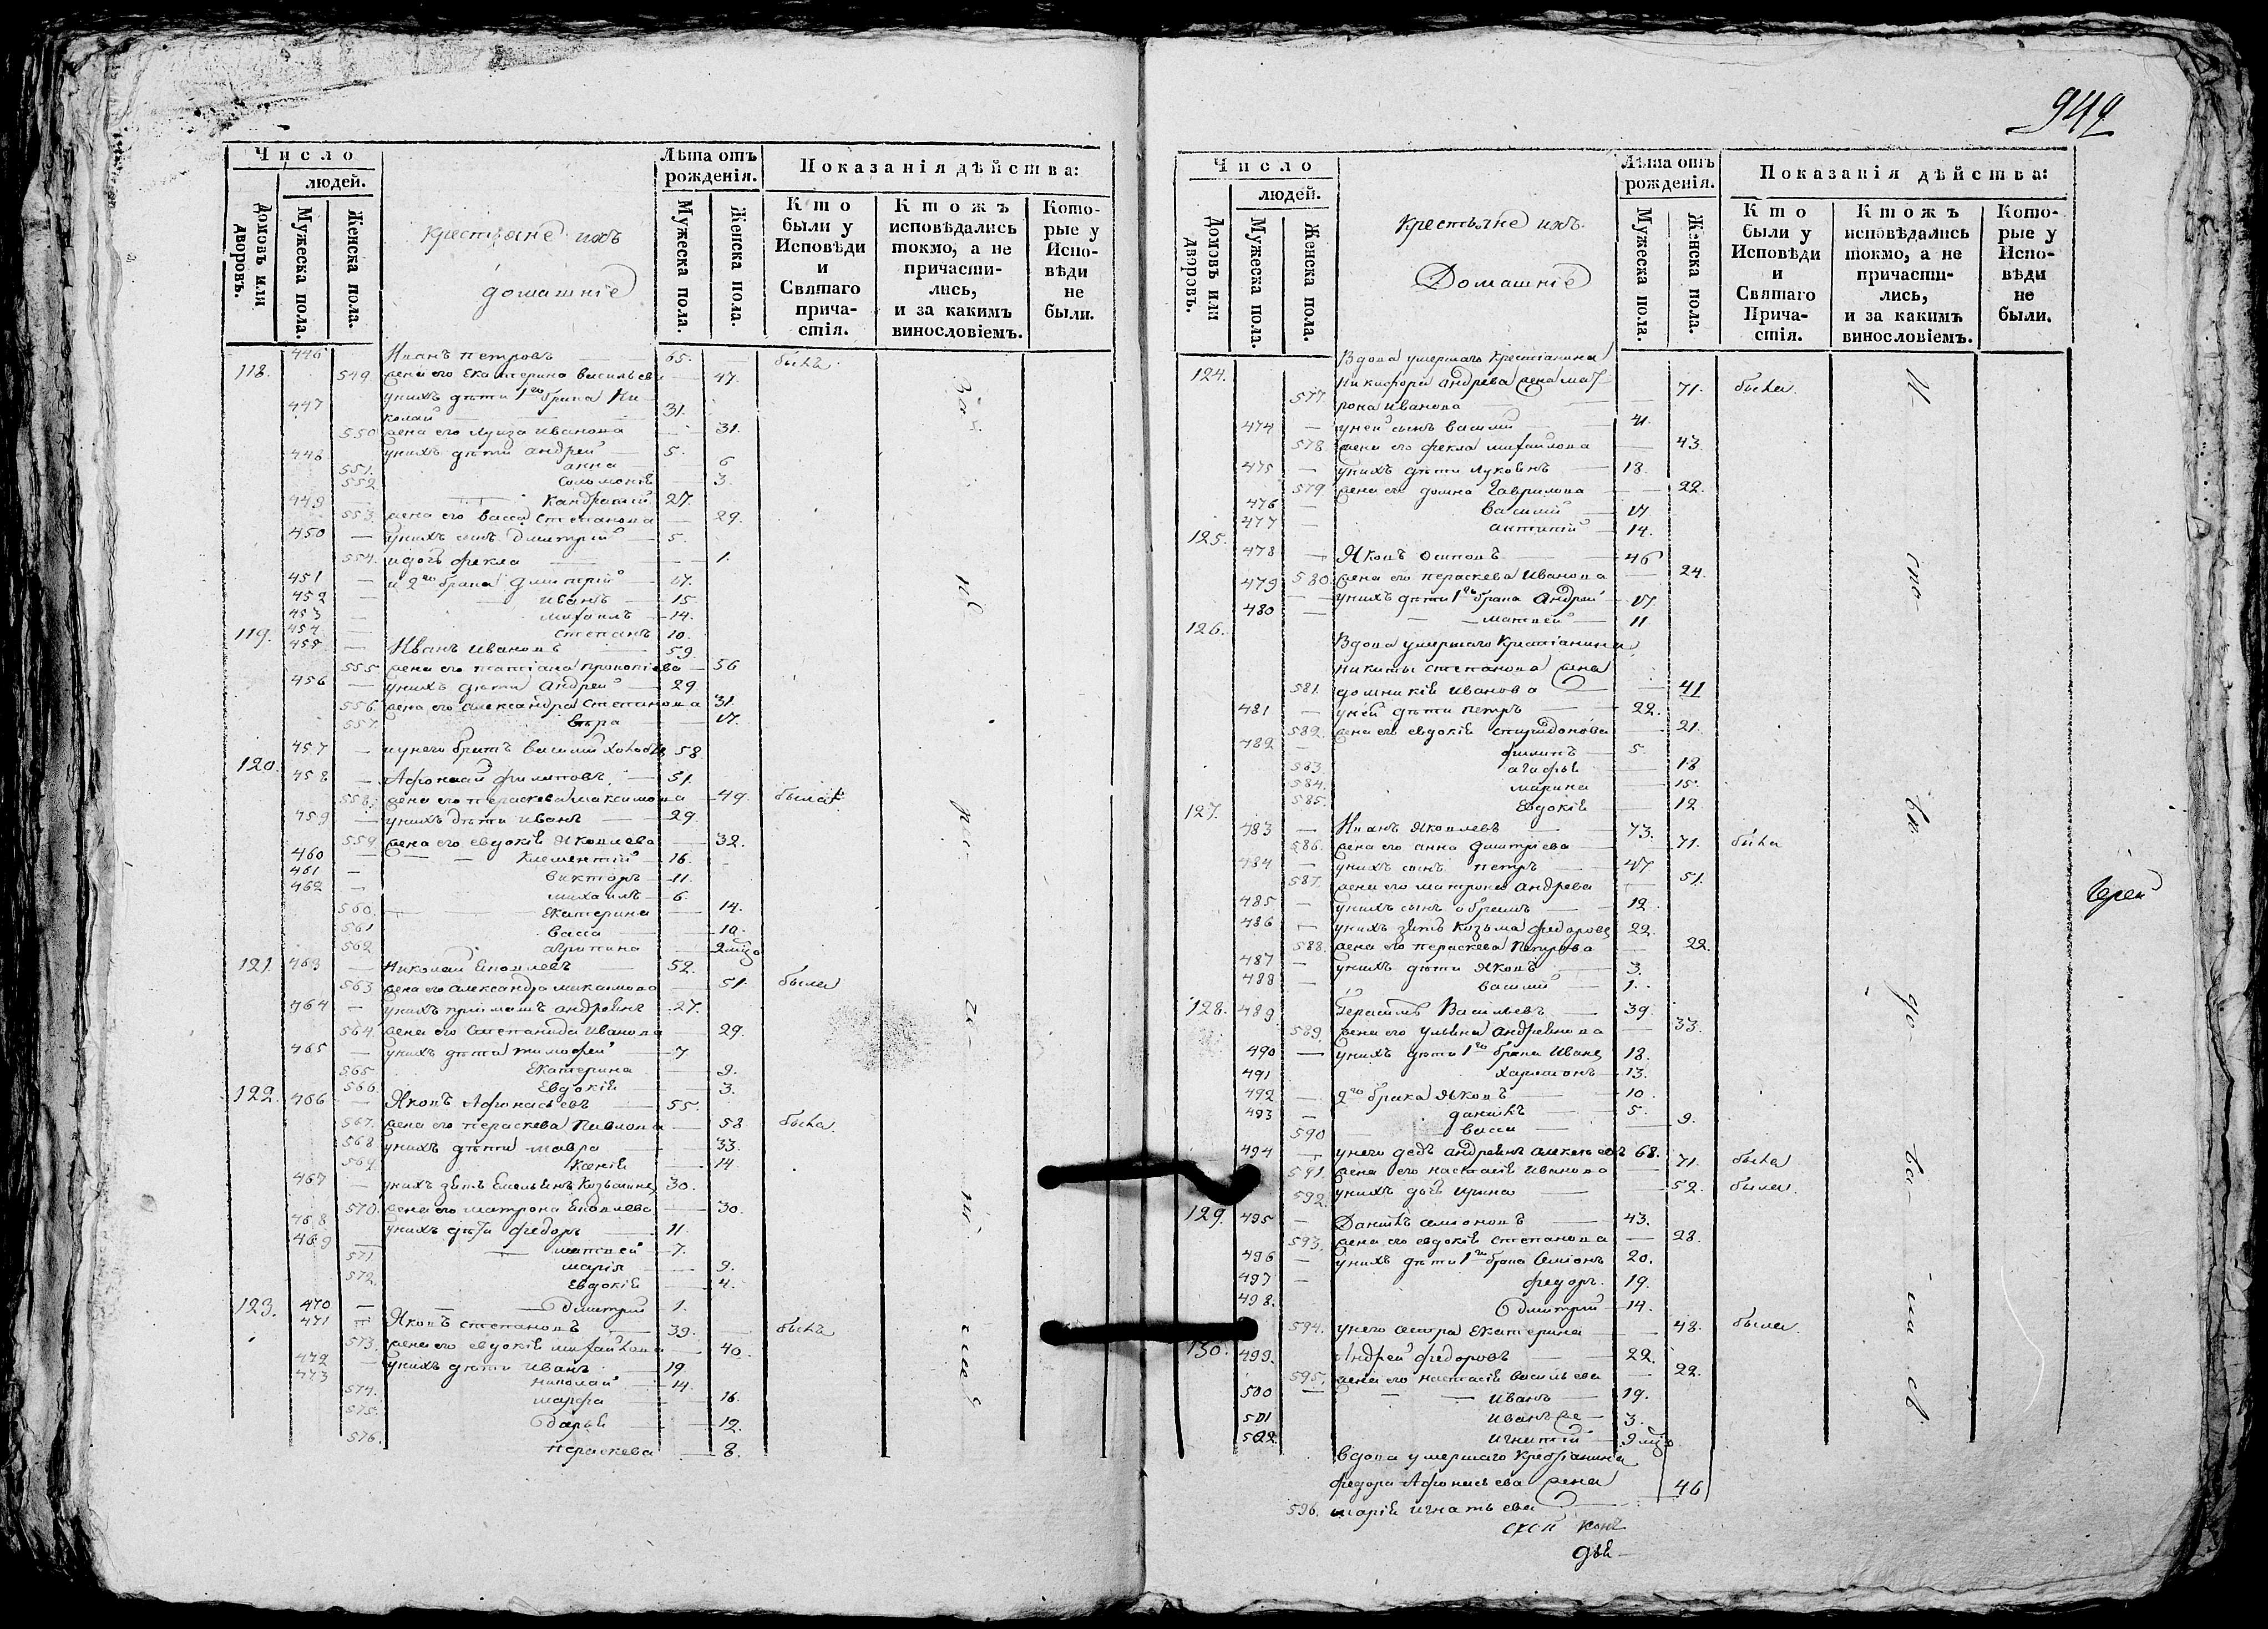 949
Число
людей.
Домовъ или дворовъ.
Мужеска пола.
Женска пола.
Крестьяне ихъ
домашніе
Лѣта отъ рожденія.
Мужеска пола.
Женска пола.
Показанія дѣйства:
Кто были у Исповѣди и Святаго причастія.
Ктожъ исповѣдались токмо, а не причастились, и за какимъ винословіемъ.
Которые у Исповѣди не были.
118. 446 Иванъ Петровъ 65. былъ
549 жена его Екатерина Васильева 47.
447 у нихъ дѣти 1го брака Ни-
колай 31.
550 жена его Луиза Иванова 31.
448 у нихъ дѣти Андрей 5.
551. Анна 6
552 Соломонія 3.
449 Кандратій 27.
553. жена его Васса Степанова 29.
450 у нихъ сынъ Дмитрій 5.
554. и дочь Фекла 1.
451 и 2го брака Дмитрій 17.
452 Иванъ 15.
453 Михаилъ 14.
454 Степанъ 10.
119. 455 Иванъ Ивановъ 59.
555 жена его Татіана Прокопіева 56
456 у нихъ дѣти Андрей 29
556 жена его Александра Степанова 31.
557. Вѣра 17.
457 у него братъ Василій 58
120. 458 Афонасій Филиповъ 51.
558. жена его Пераскева Максимова 49. была
459 у нихъ дѣти Иванъ 29.
559 жена его Евдокія Яковлева 32.
460 Клементій 16.
461 Викторъ 11.
462 Михаилъ 6.
560. Екатерина 14.
561 Васса 10.
562 Агрипина
121. 463 Николай Яковлевъ 52.
563 жена его Александра 51. была
464 у нихъ Андреянъ 27.
564. жена его Степанида Иванова 29.
465 у нихъ дѣти Тимофей 7
565 Екатерина 9.
566 Евдокія 3.
122. 466 Яковъ Афонасьевъ 55.
567. жена его Пераскева Павлова 58 была
568 у нихъ дѣти Мавра 33.
569 14
467 у нихъ зять Емельянъ Козьминъ 30.
570. жена его Матрона Яковлева 30.
468 у нихъ дѣти Федоръ 11.
469 Матвей 7.
571 Марія 9.
572. Евдокія 4.
470 Дмитрий 1.
123. 471 Яковъ Степановъ 39. былъ
573. жена его Евдокія Михайлова 40.
472 у нихъ дѣти Иванъ 19
473 Николай 14.
574. Марфа 16.
575. Дарья 12.
576. Пераскева 8.
Число
людей.
Домовъ или дворовъ.
Мужеска пола.
Женска пола.
Крестьяне ихъ.
Домашніе
Лѣта отъ рожденія.
Мужеска пола.
Женска пола.
Показанія дѣйства:
Кто были у Исповѣди и Святаго Причастія.
Ктожъ исповѣдались токмо, а не причастились, и за какимъ винословіемъ.
Которые у Исповѣди не были.
124. Вдова умершаго крестіанина
Никифора Андреева жена Мат-
577 рона Иванова 71. была
474 у ней сынъ Василий 41.
578. жена его Фекла Михаилова 43.
475 у нихъ дѣти Лукоянъ 18.
579 жена его Домна Гаврилова 22.
476 Василий 17
477 Антипій 14.
125. 478 Яковъ Осиповъ 46
580. жена его Пераскева Иванова 24.
479 у нихъ дѣти 1го брака Андрей 17.
480 Матвей 11
126. Вдова умершаго крестіанина
Никиты Степанова жена
581. Домникія Иванова 41
481 у ней дѣти Петръ 22.
582. жена его Евдокія Спиридонова 21.
482 Филипъ 5.
583 Агафья 18
584. Марина 15.
585. Евдокія 12
127. 483 Иванъ Яковлевъ 73.
586. жена его Анна Дмитріева 71. была
484 у нихъ сынъ Петръ 47
587. жена его Матрона Андреева 51.
485 у нихъ сынъ Ефремъ 12.
486 у нихъ зять Козьма Федоровъ 22.
588. жена его Пераскева Петрова 22.
487 у нихъ дѣти Яковъ 3.
488 Василий 1.
128. 489 Герасимъ Васильевъ 39.
589. жена его Ульяна Андреянова 33.
490 у нихъ дѣти 1го брака Иванъ 18.
491 Харитонъ 13.
492 2го брака Яковъ 10.
493 Данилъ 5.
590 Васса 9.
494 у него дедъ Андреянъ Алексеевъ 68.
591. жена его Настасія Иванова 71. была
592 у нихъ дочь Ирина 52. была.
129. 495 Данилъ Семіоновъ 43.
593. жена его Евдокія Степанова 28.
496 у нихъ дѣти 1го брака Семіонъ 20.
497 Федоръ. 19.
498. Дмитрий 14.
594. у него сестра Екатерина 48. была.
130. 499. Андрей Федоровъ 22.
595. жена его Настасія Васильева 22.
500 Иванъ 19.
501 Иванъ же 3.
502 Игнатій
вдова умершаго крестіанина
Федора Афонасьева жена 46
596. Марія Игнатьева